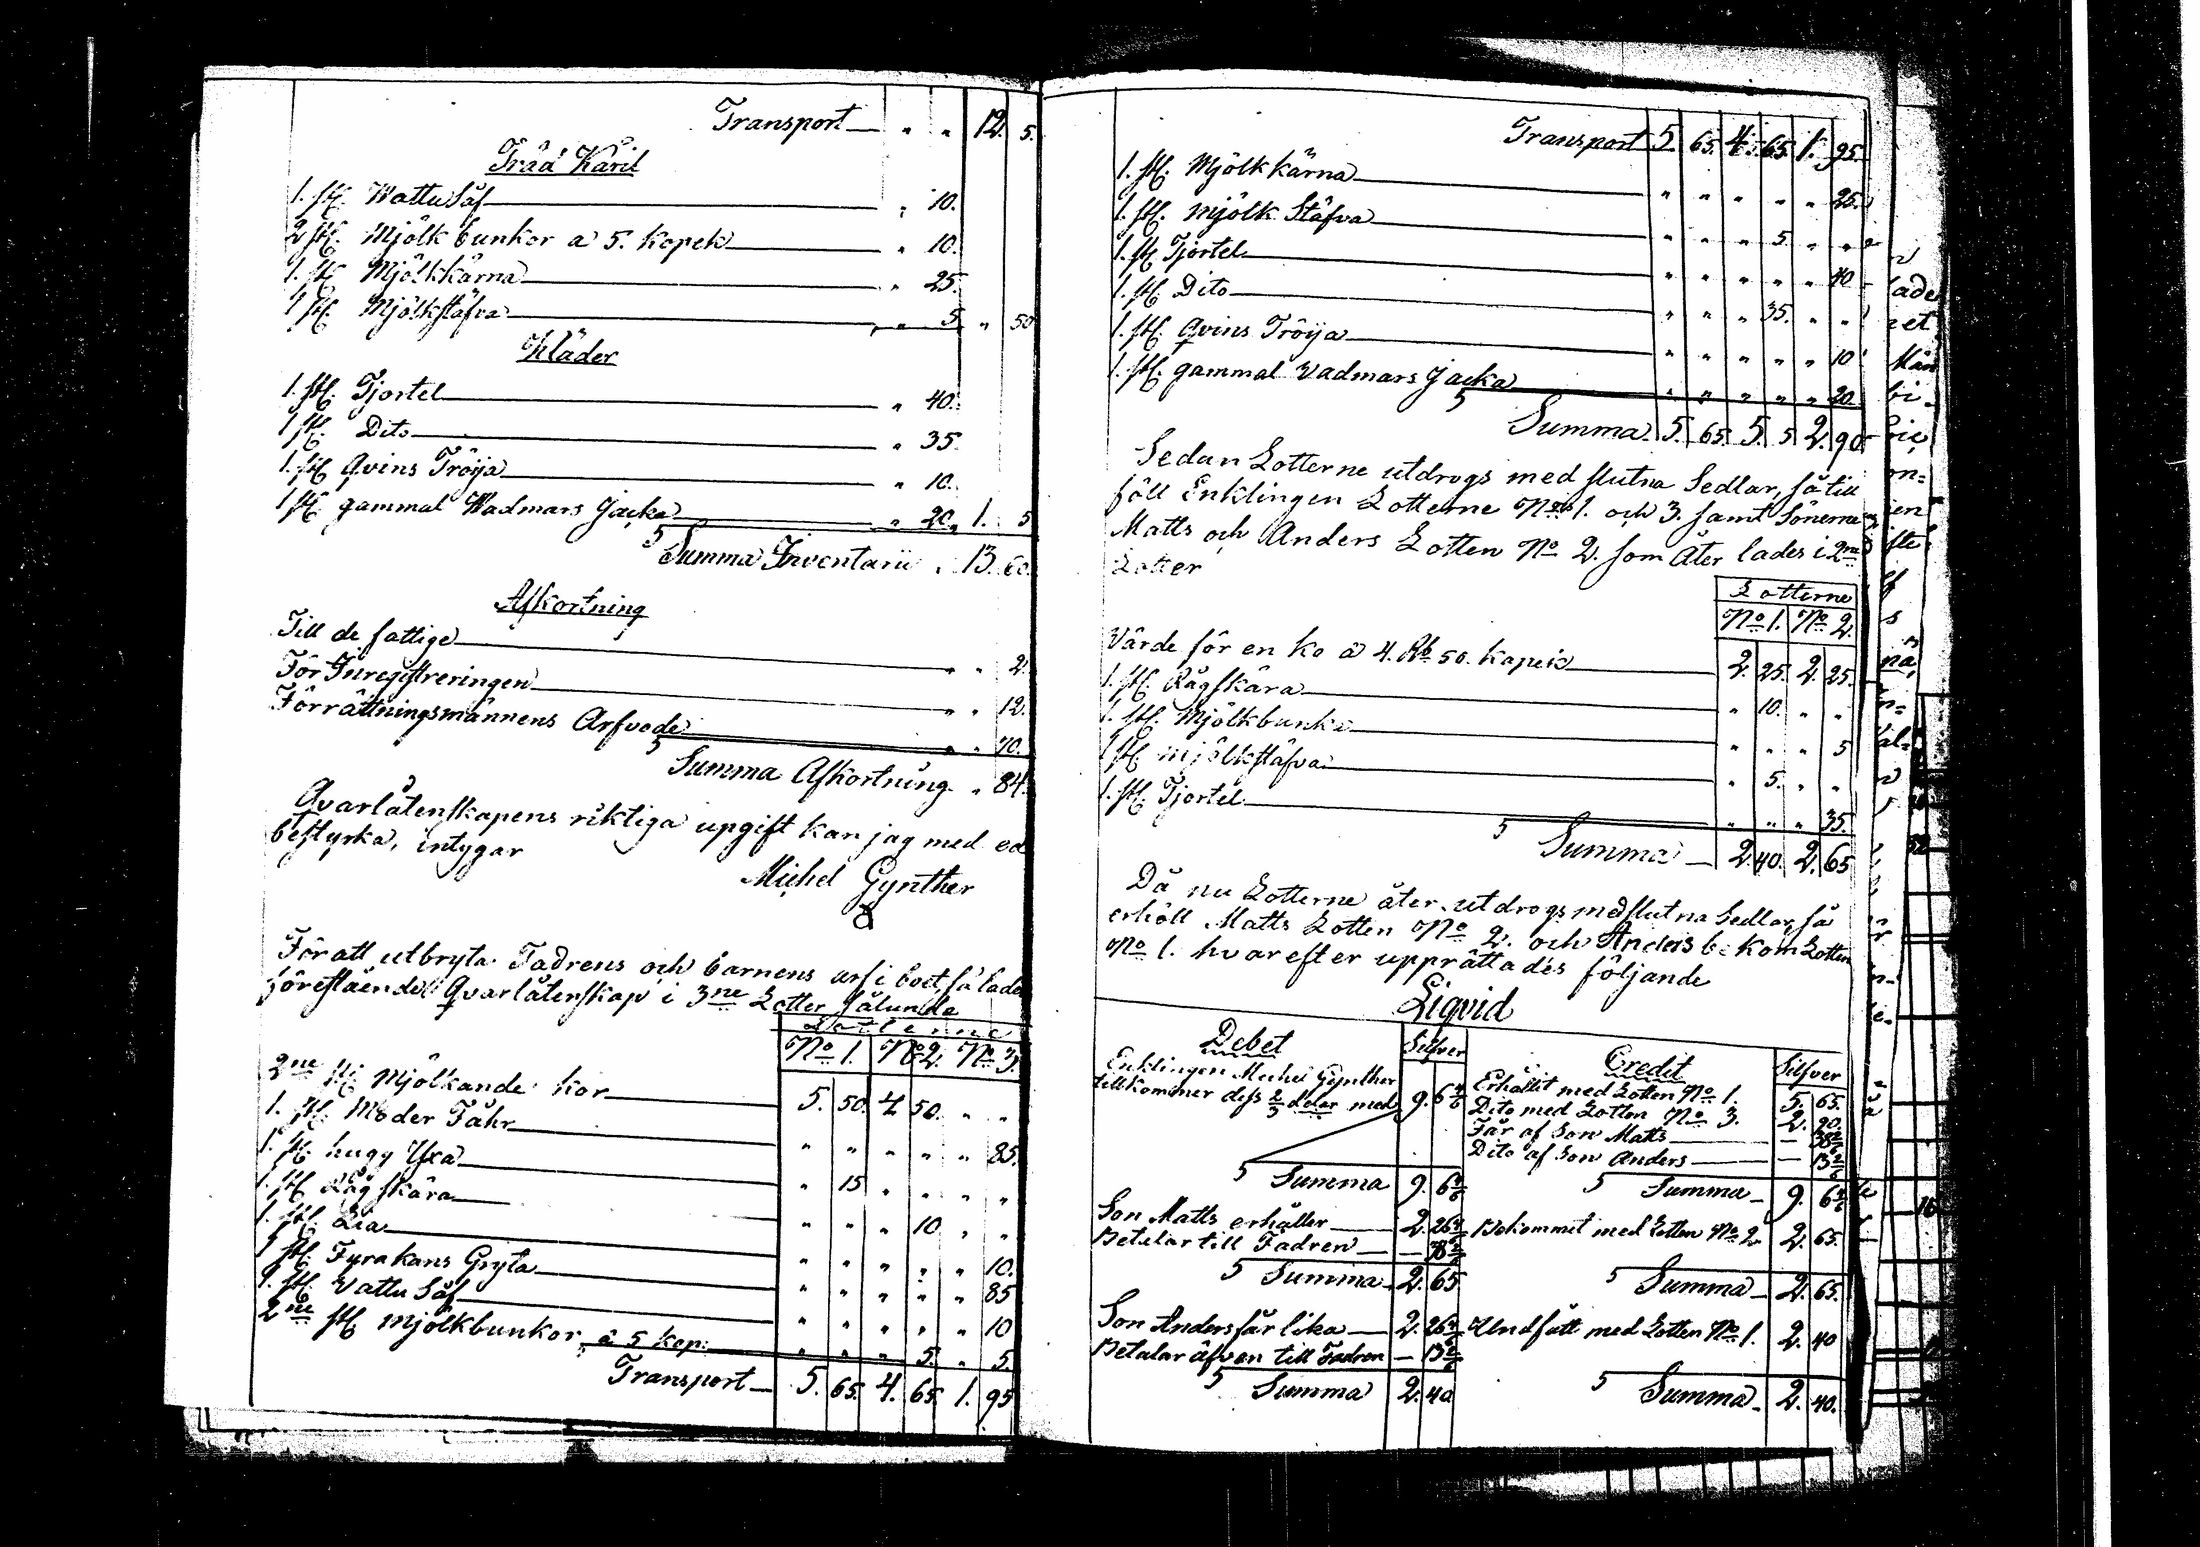 Transport " " 12. 5.
Trää Käril
1. st. Wattu Såf " 10.
2 st. Mjölk bunkor a 5. Kopek " 10.
1. st. Mjölkkärna " 25.
1 st. Mjölkstäfva " 5. " 50
Kläder
1. st. Tjortel " 40.
1 st. Dito " 35.
1. st. Qvins Tröija " 10.
1 st. gammal Wadmars Jacka " 20. 1. 5
Summa Inventarii " 13. 60.
Afkortning
Till de fattige " " 2.
För Inregistreringen " " 12.
Förrättningsmännens Arfvode " " 70.
Summa Afkortning " 84.
Qvarlåtenskapens riktiga upgift kan jag med ed
bestyrka, intygar
Michel Gynther
För att utbryta Fadrens och barnens arf i boet, så lades
föreståendes Qvarlåtenskap i 3ne Lotter sålunda
Lotterne
No 1. No 2. No 3.
2ne st. Mjölkande kor 5. 50. 4 50. " "
1. st. Moder Fåhr " " " " " 85.
1. st. hugg Yxa " 15 " " " "
1. st. Råg skära " " " 10 " "
1. st. Lia " " " " " 10.
1 st. Fyrakans Gryta " " " " " 85
1. st. Vattu Såf " " " " " 10
2ne st. mjölkbunkor a 5 kop: " " " 5. " 5
Transport 5. 65. 4. 65. 1. 95
Transport 5. 65. 4. 65. 1. 95.
1. st. Mjölkkärna " " " " " 25.
1. st. Mjölk Stäfva " " " 5. " "
1. st. Tjortel " " " " " 40
1. st. Dito " " " 35. " "
1. st. Qvins Tröija " " " " " 10
1. st. gammal Vadmars Jacka " " " " " 20.
Summa 5. 65. 5. 5 2. 90
Sedan Lotterne utdrogs med slutna Sedlar, så till
föll Enklingen Lotterne No 1. och 3. samt Sönerne
Matts och Anders Lotten No 2. som åter lades i 2ne
Lotter
Lotterne
No 1. No 2.
Värde för en ko a 4. Rb 50. Kapeik 2. 25. 2. 25.
1. st. Rågskära " 10. " "
1. st. Mjölkbunke " " " 5
1 st. mjölkstäfva " 5. " "
1. st. Tjortel " " " 35.
Summa 2. 40. 2. 65
Då nu Lotterne åter utdrogs med slutna Sedlar, så
erhöll Matts Lotten No 2. och Anders bekom Lotten
No 1. hvarefter upprättades följande
Liqvid
Debet Silfver Credit Silfver
Enklingen Michel Gynther Erhållit med Lotten No 1. 5. 65.
tillkommer dess 2/3 delar med 9. 6 4/6 Dito med Lotten No 3. 2. 90.
Får af Son Matts — 38 2/6
Dito af Son Anders — 13 2/6
Summa 9. 6 4/6 Summa 9. 6 4/6
Son Matts erhåller 2. 26 4/6 Bekommit med Lotten No 2 2. 65.
Betalar till Fadren — 38 2/6
Summa 2. 65 Summa 2. 65.
Son Anders får lika 2. 26 4/6 Undfått med Lotten No 1. 2. 40
Betalar äfven till Fadren — 13 2/6
Summa 2. 40 Summa 2. 40.